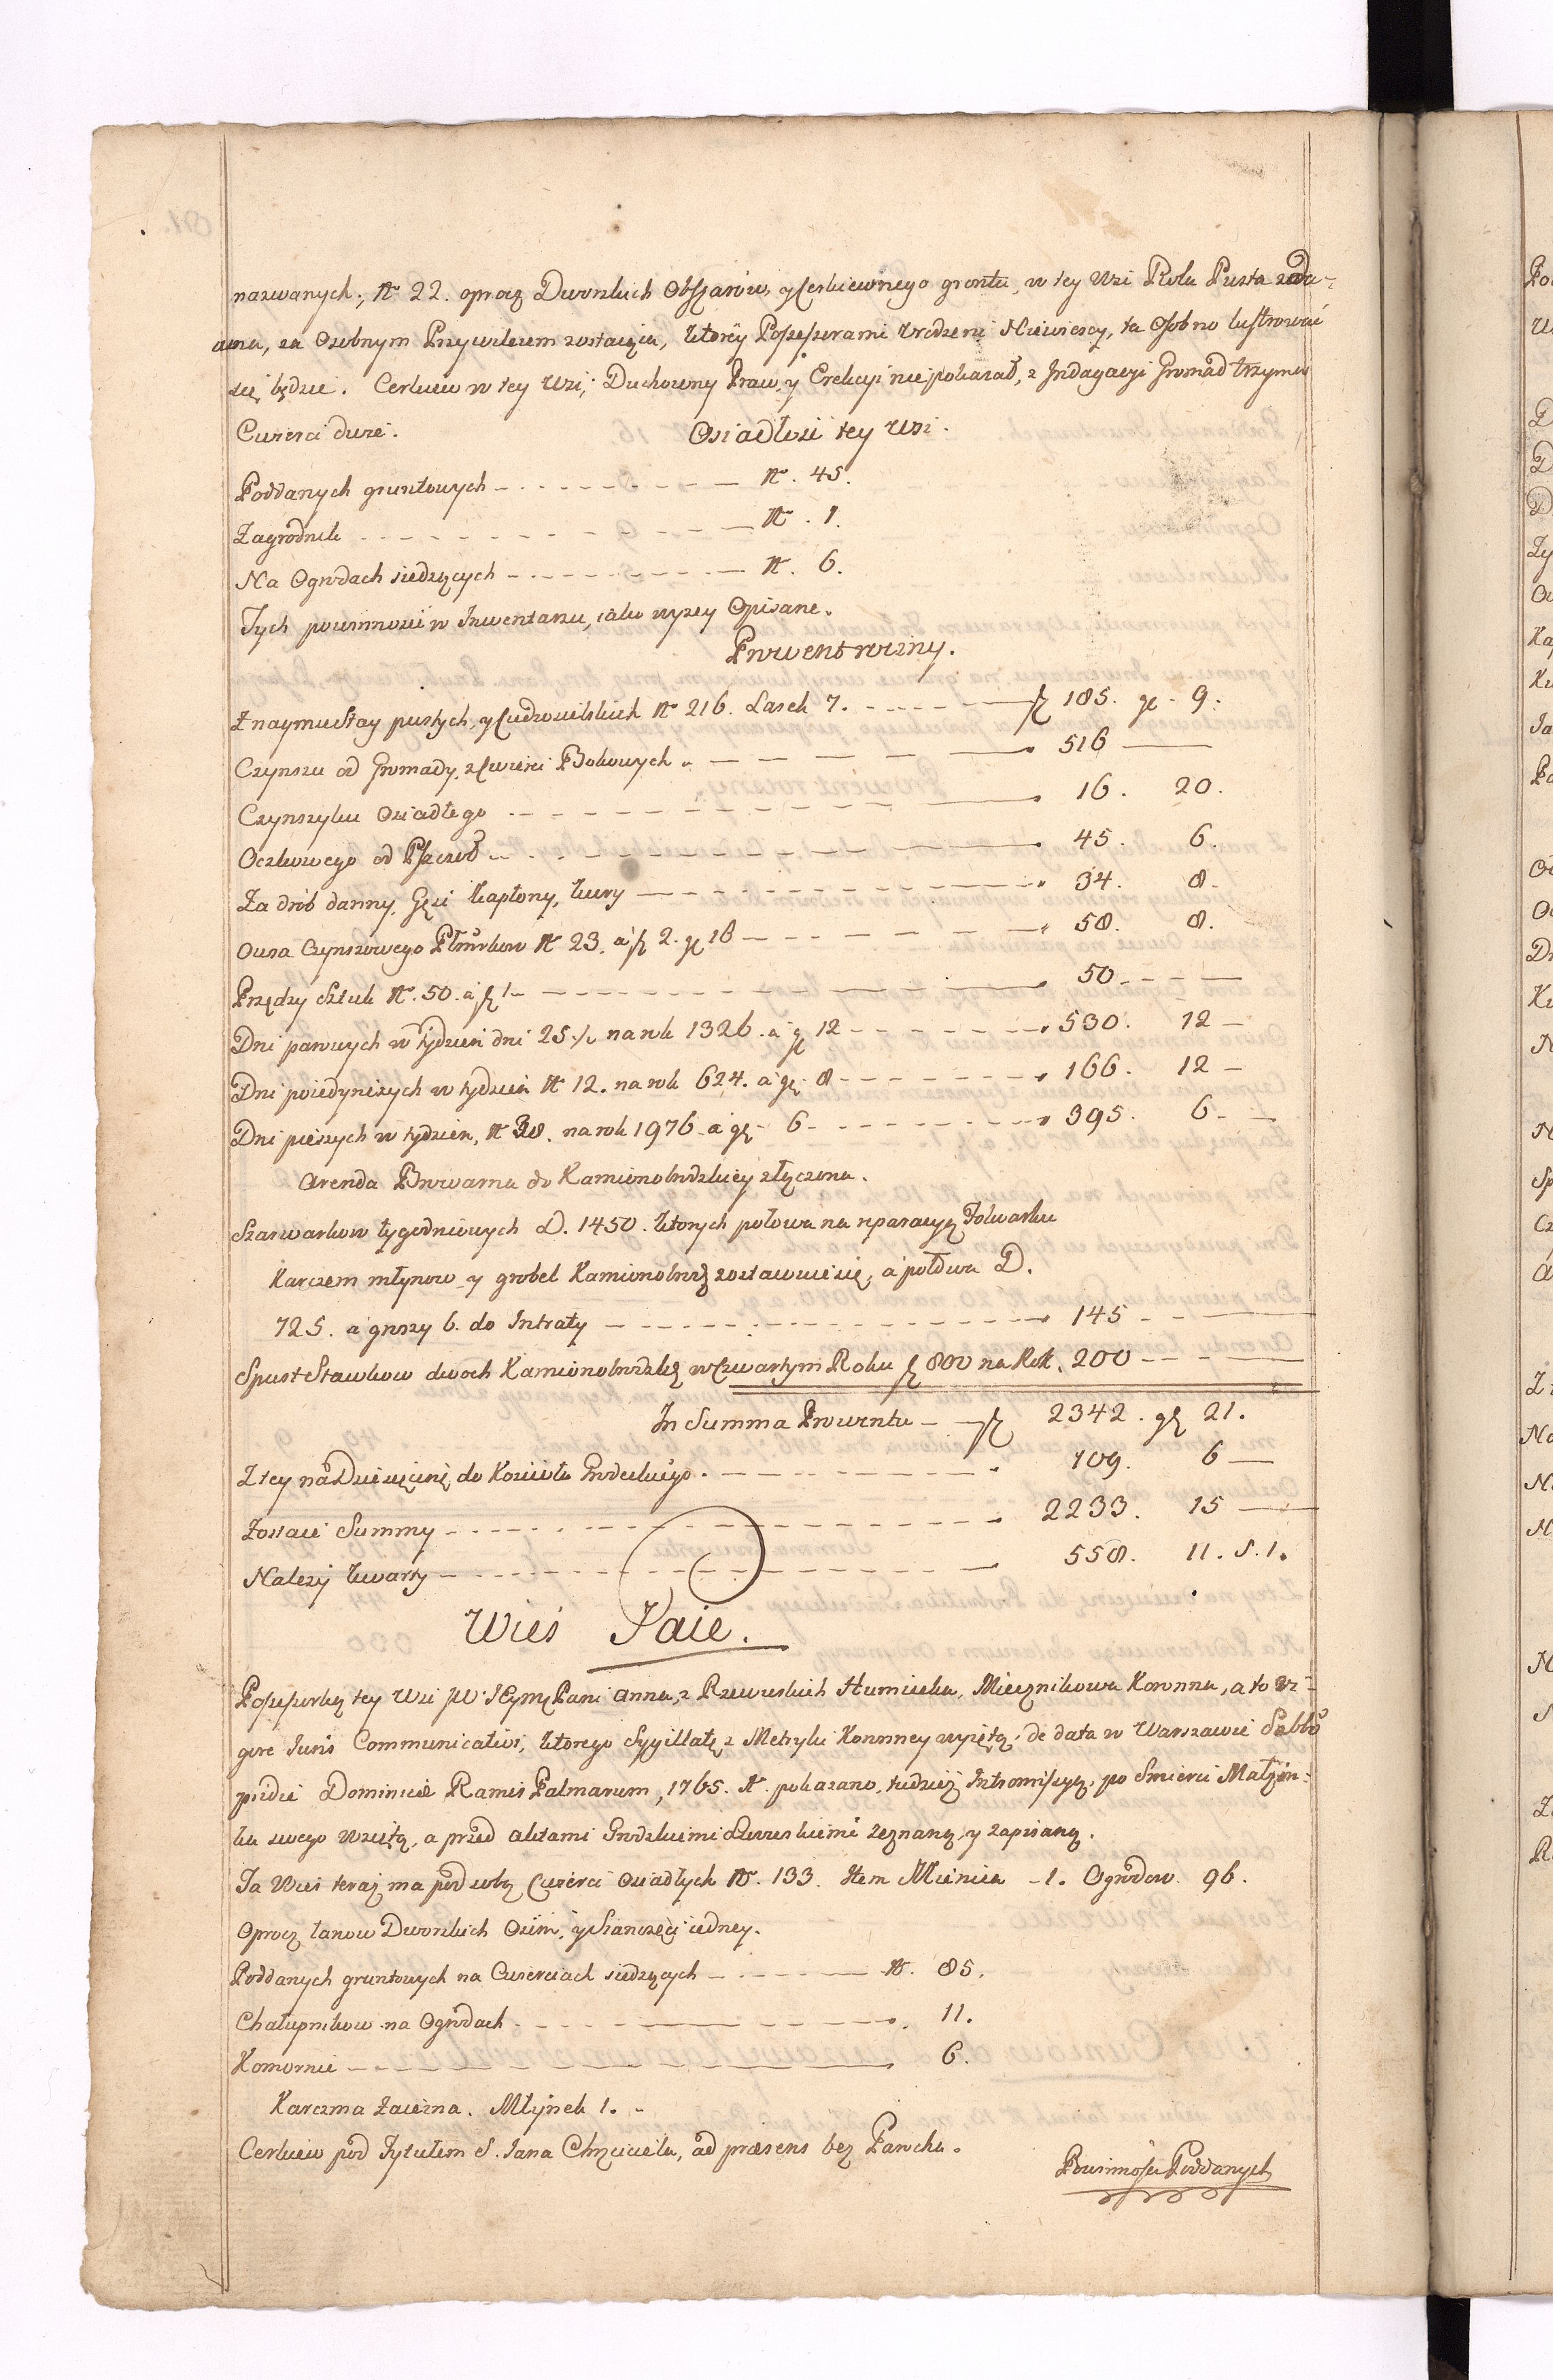 nazwanych, N 22. oprocz Dworskich Obszarow, y Cerkiewnego gruntu, w tey Wsi Rola Pusta zada-
wna, za Osobnym Przywilejem zostaiąca, ktorey Possessorami Urodzeni Niewiescy, ta Osobno lustrować
się będzie. Cerkiew w tey Wsi, Duchowny Praw, y Erekcyi nie pokazał, z Indagacyi Gromad trzyma
Cwierci dwie. Osiadłość tey Wsi.
Poddanych gruntowych - N. 45.
Zagrodnik - N. 1.
Na Ogrodach siedzących - N. 6.
Tych powinność w Inwentarzu, iako wyzey Opisane.
Prowent roczny.
Z naymu Stay pustych, y Cudzowilskich N 216. Lasek 7. - f 185. g 9.
Czynszu od Gromady, z Cwierci Bokowych - 516 -
Czynszyku Osiadłego - 16. 20.
Oczkowego od Pszczoł - 45. 6.
Za drób danny, Gęsi Kapłony, Kury - 34. 8.
Owsa Czynszowego Połmiarkow N 23. a f 2. g 16 - 58. 8.
Przędzy Sztuk N. 50. a f 1 - 50. -
Dni parowych w tydzień dni 25½ na rok 1326. a g 12 - 530. 12 -
Dni poiedynczych w tydzień N 12. na rok 624. a g. 8 - 166. 12 -
Dni pieszych w tydzien, N 38. na rok 1976. a g. 6 - 395. 6 -
Arenda Browarna do Kamionobrodzkiey złączona.
Szarwarkow tygodniowych D. 1450. ktorych połowa na reparacyą Folwarku
Karczem młynow, y grobel Kamionobrodz zostawuie się, a połowa D.
725. a groszy 6. do Intraty - 145 -
Spust Stawkow dwoch Kamionobrodzką w Czwartym Roku f 800 na Rok. 200 -
In Summa Prowentu - f 2342. g 21.
Z tey na Dziesięcinę do Kościoła Grodeckiego. - 109. 6 -
Zostaie Summy - 2233. 15 -
Nalezy kwarty - 558. 11. S. 1.
Wies Jaie.
Possessorką tey Wsi JW. JEymć Pani Anna, z Rzewuskich Humiecka, Miecznikowa Koronna, a to vi-
gore Juris Communicativi, ktorego Sygillatę z Metryki Koronney wyiętą, de data w Warszawie Sabbo
pridie Dominicae Ramis Palmarum, 1765. N. pokazano, tudziesz Intromissyą, po Smierci Małzon-
ka swego wziętą, a przed Aktami Grodzkiemi Lwowskiemi zeznaną, y zapisaną.
Ta Wies teraz ma pod sobą Cwierci Osiadłych N. 133. Item Miernica - 1. Ogrodow. 96.
Oprocz łanow Dworskich Osim, y Sianozęci iedney.
Poddanych gruntowych na Cwierciach siedzących - N. 85.
Chałupnikow na Ogrodach - 11.
Komornic - 6.
Karczma Zaiezna. Młynek 1.
Cerkiew pod Tytułem S. Jana Chrzciciela, ad praesens bez Parocha.
Powinność Poddanych